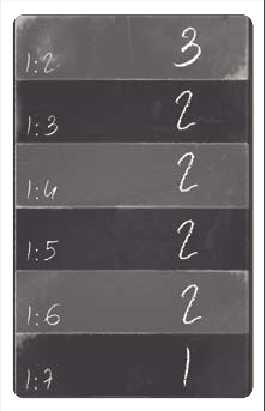 1:2 3
1:3 2
1:4 2
1:5 2
1:6 2
1:7 1